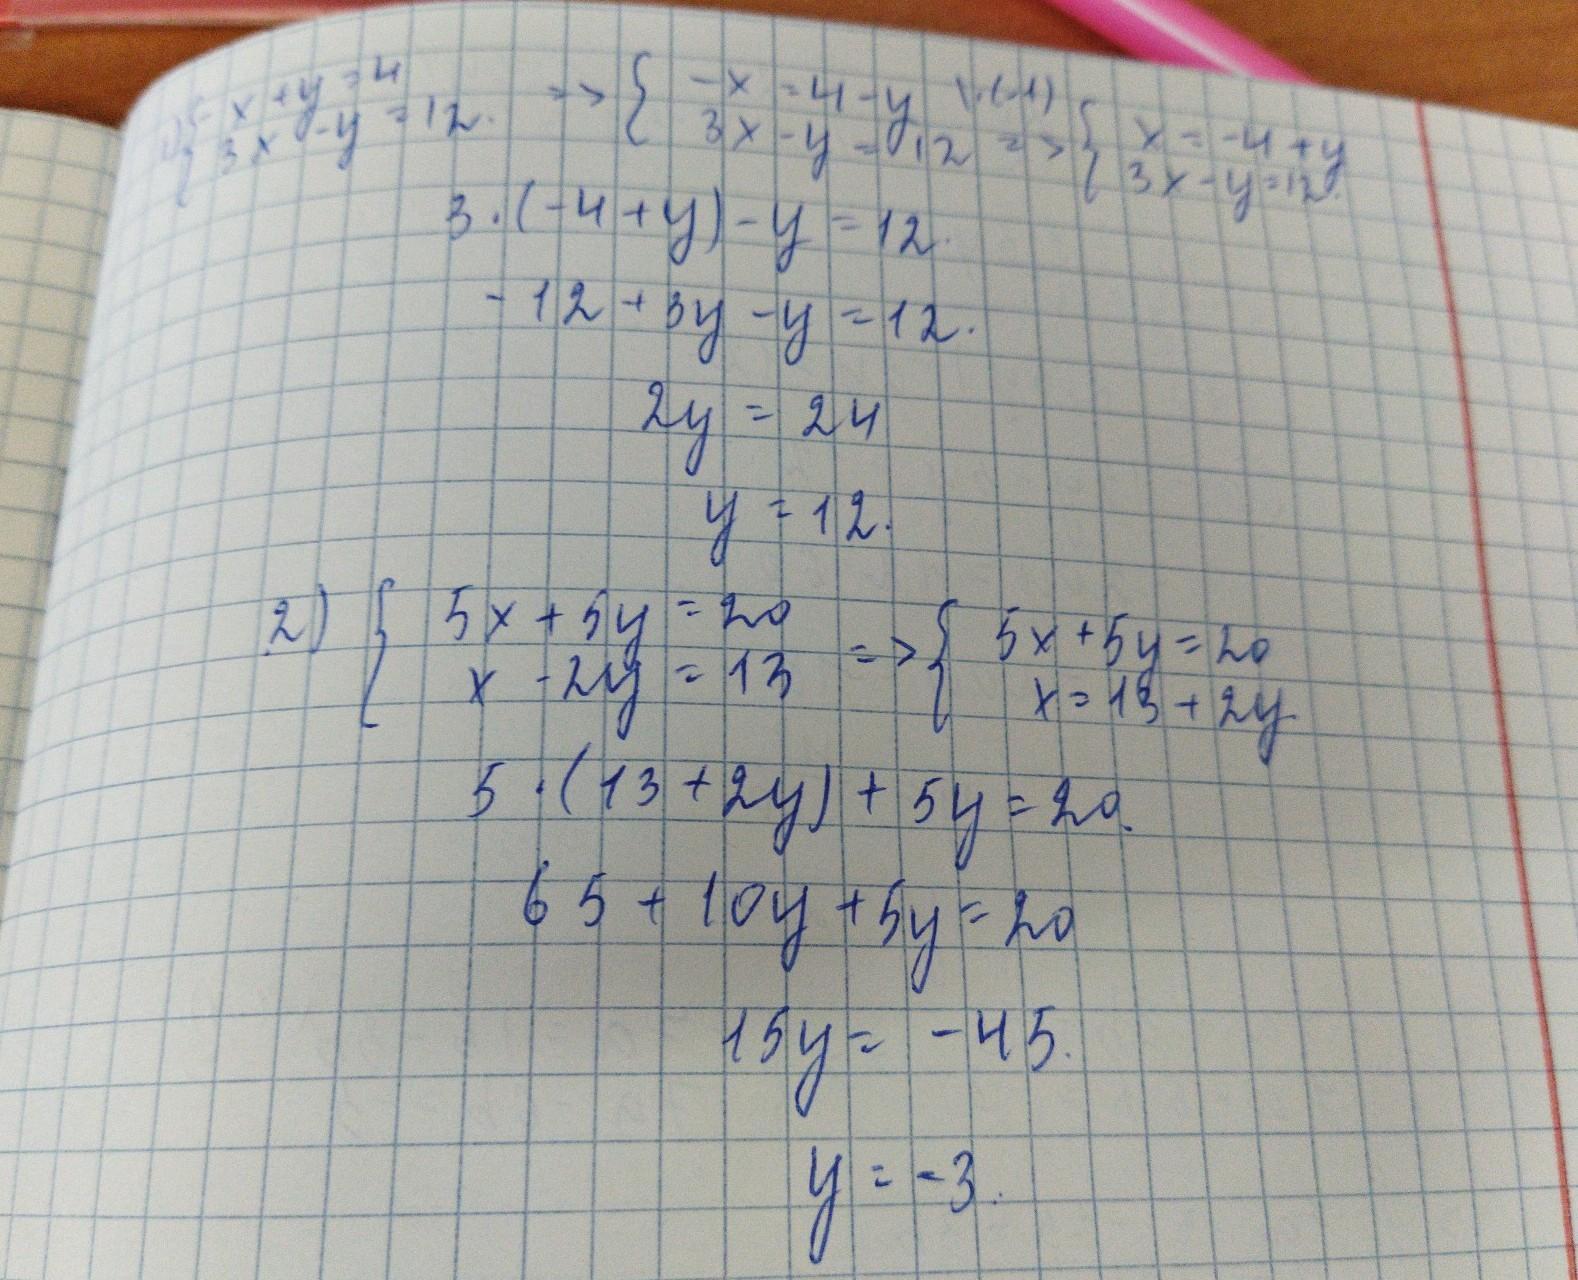 1) { -x+y=4 => { -x=4-y |·(-1)
3x-y=12. 3x-y=12 => { x=-4+y
3x-y=12.
3·(-4+y)-y=12.
-12+3y-y=12.
2y=24
y=12.
2) { 5x+5y=20 => { 5x+5y=20
x-2y=13 x=13+2y
5·(13+2y)+5y=20.
65+10y+5y=20
15y=-45.
y=-3.